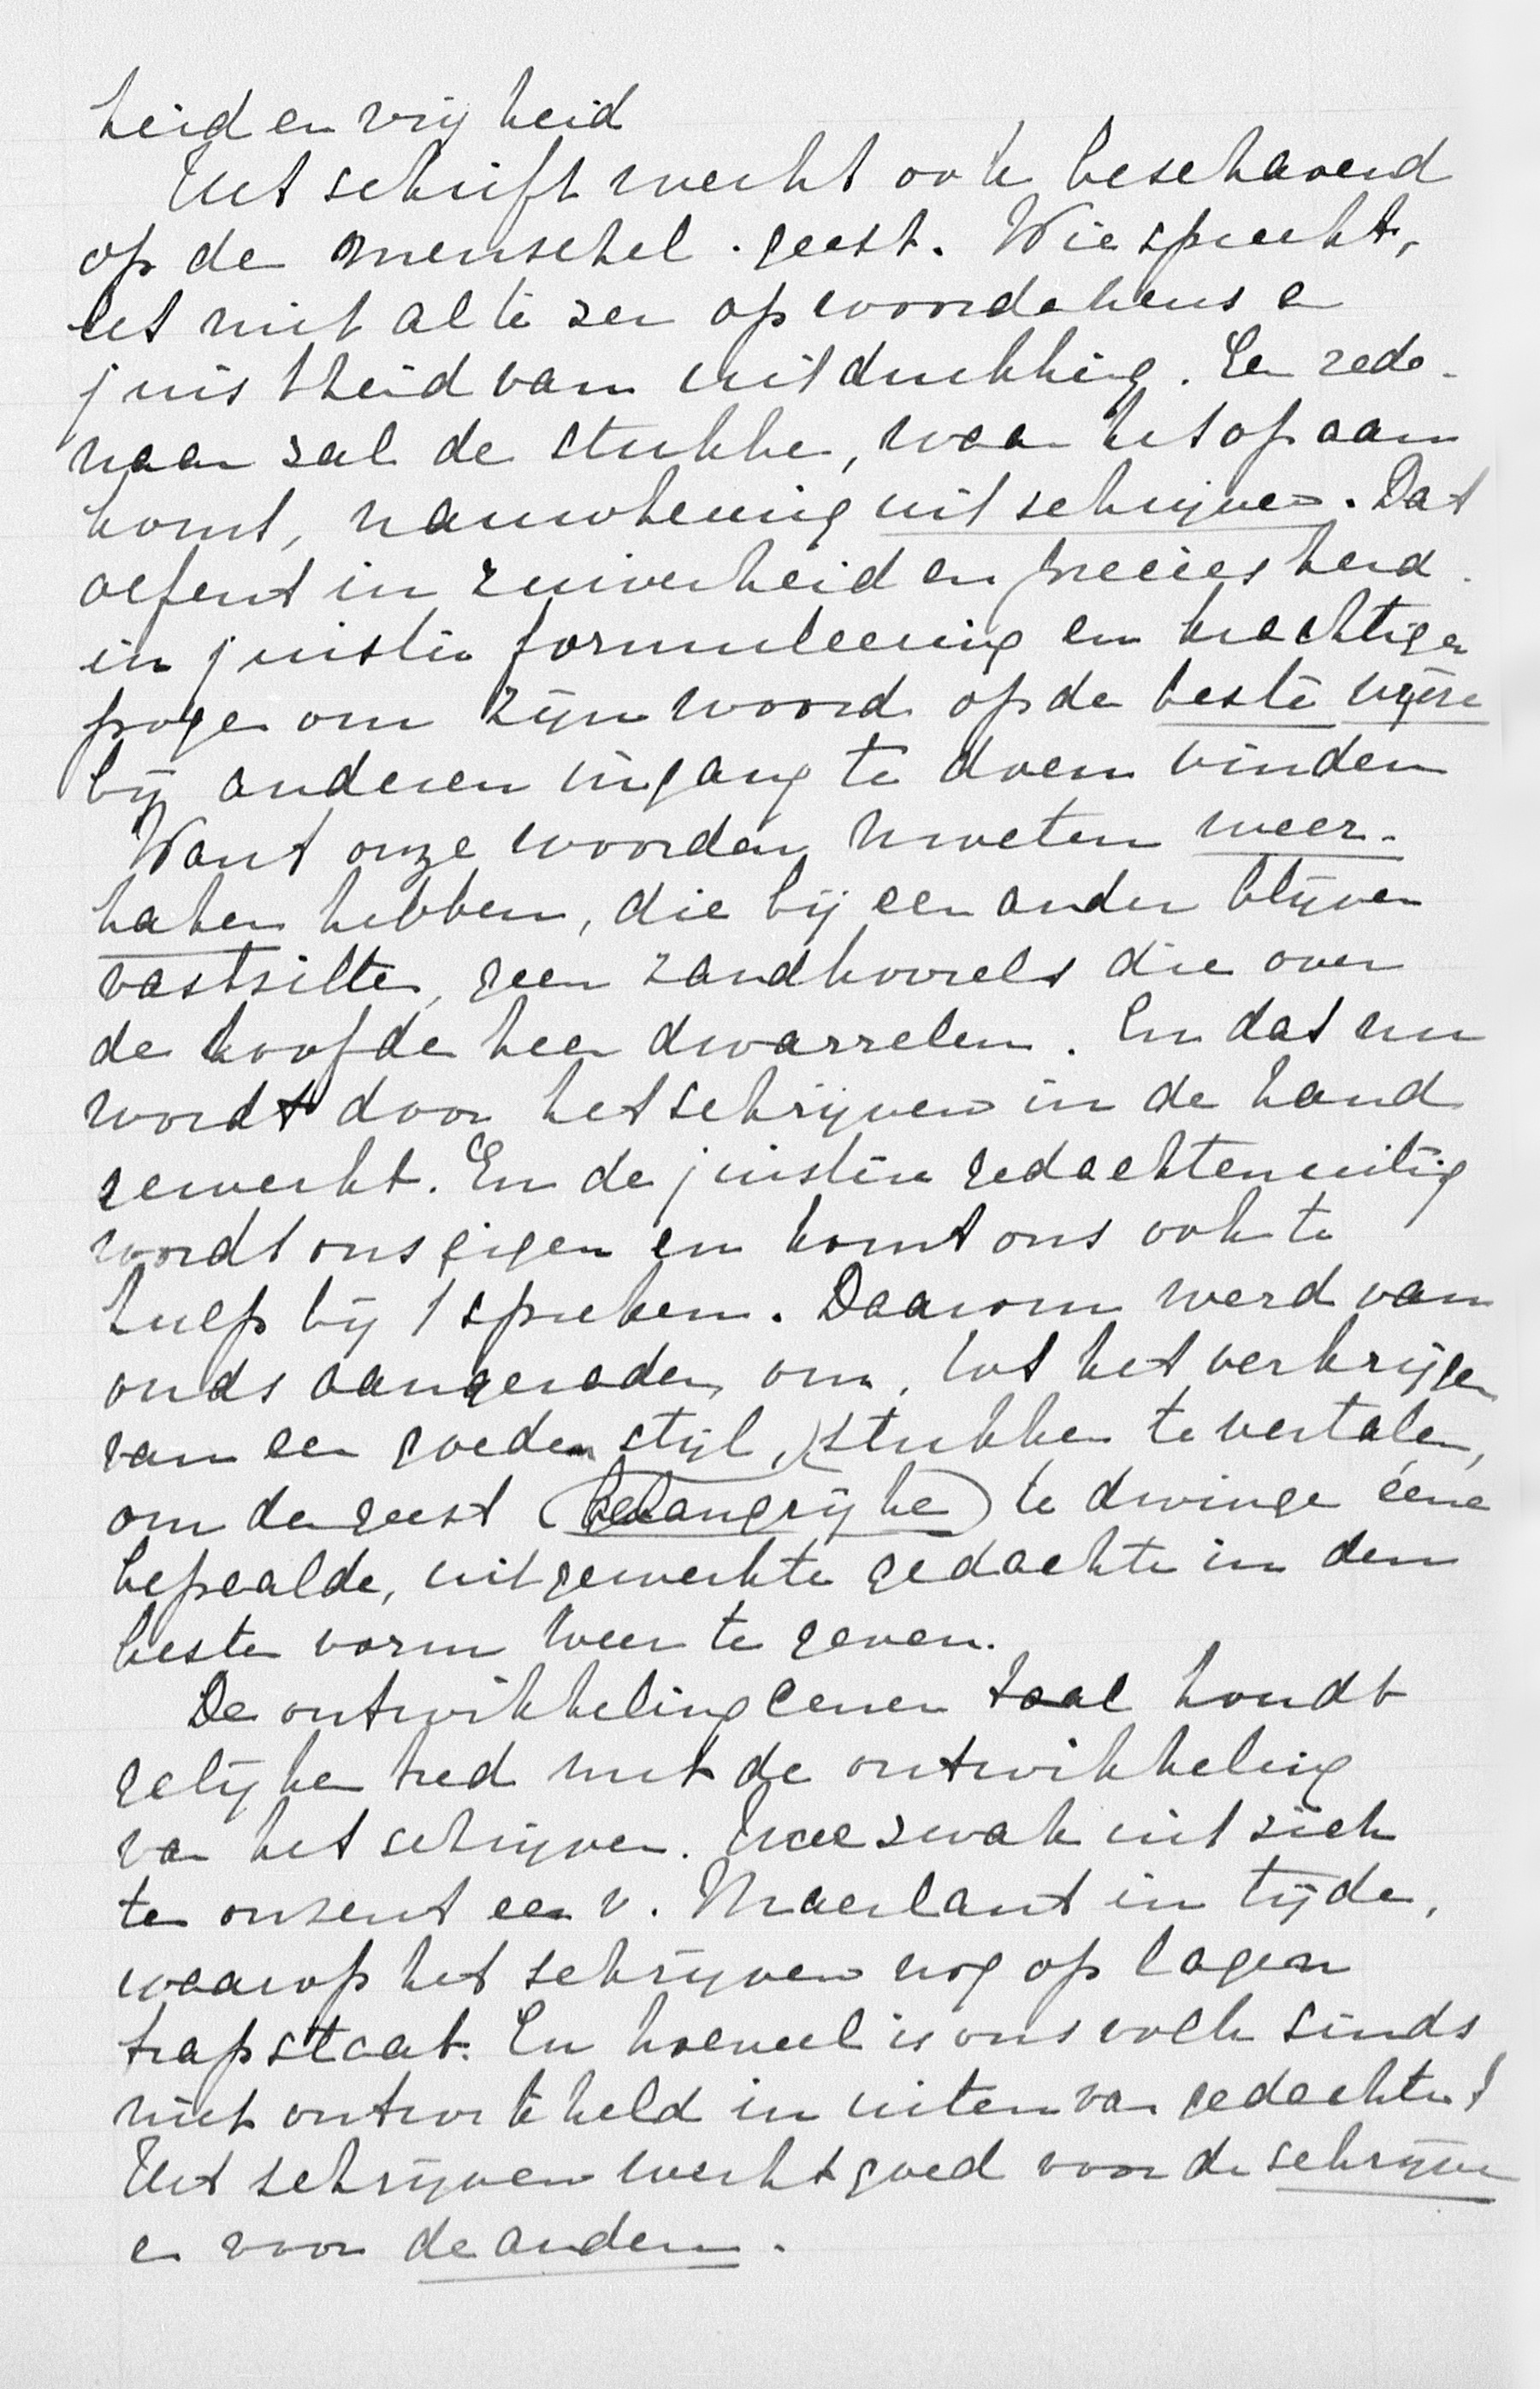 heid en vrijheid
Het schrift werkt ook beschavend
op de menschel. geest. Wie spreekt,
let niet al te zeer op woordekeus en
juistheid van uitdrukking. Een rede-
naar zal de stukken, waar het op aan
komt, nauwkeurig uitschrijven. Dat
oefent in zuiverheid en preciesheid
in juiste formuleering en krachtiger
pogen om zijn woord op de beste wijze
bij anderen ingang te doen vinden
Want onze woorden moeten weer-
haken hebben, die bij een ander blijven
vastzitten, geen zandkorrels die over
de hoofden heen dwarrelen. En dat nu
wordt door het schrijven in de hand
gewerkt. En de juiste gedachtenuiting
wordt ons eigen en komt ons ook te
hulp bij 't spreken. Daarom werd van
ouds aangeraden om, tot het verkrijgen
van een goeden stijl, stukken te vertalen,
om den geest (belangrijke) te dwingen ééne
bepaalde, uitgewerkte gedachte in den
besten vorm weer te geven.
De ontwikkeling eener taal houdt
gelijken tred met de ontwikkeling
van het schrijven. Hoe zwak uit zich
ten onzent een v. Maerlant in tijden,
waarop het schrijven nog op lagen
trap staat. En hoeveel is ons volk sinds
niet ontwikkeld in uiten van gedachten!
Het schrijven werkt goed voor de schrijver
en voor de anderen.